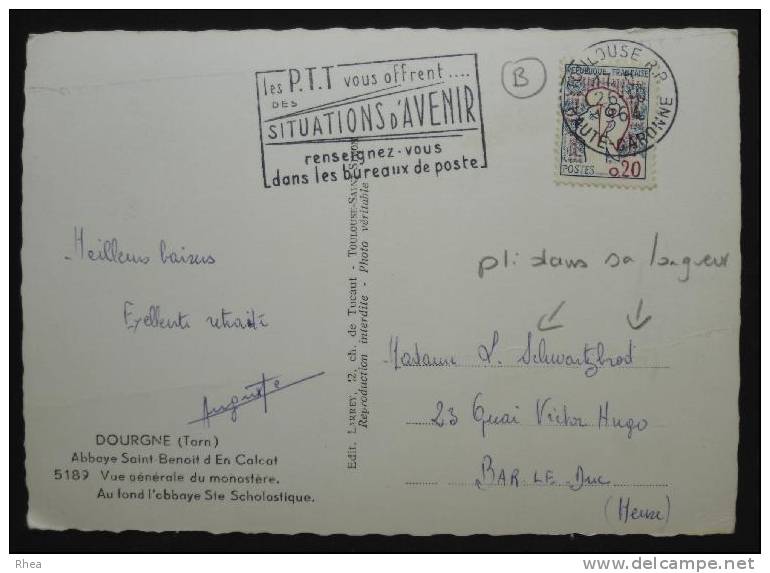 les P.T.T vous offrent....
DES
SITUATIONS D'AVENIR
renseignez-vous
dans les bureaux de poste
B
TOULOUSE R.P.
HAUTE-GARONNE
REPUBLIQUE FRANÇAISE
POSTES 0,20
Meilleurs baisers
Exellente retraite
Auguste
DOURGNE (Tarn)
Abbaye Saint Benoit d En Calcat
5189 Vue générale du monastère.
Au fond l'abbaye Ste Scholastique.
Edit. LARREY, 12, ch. de Tucaut - TOULOUSE-SAINT-SIMON
Reproduction interdite - Photo véritable
pli dans sa longueur
Madame L. Schwartzbrod
23 Quai Victor Hugo
BAR LE DUC
(Meuse)
Rhea
delcampe.net